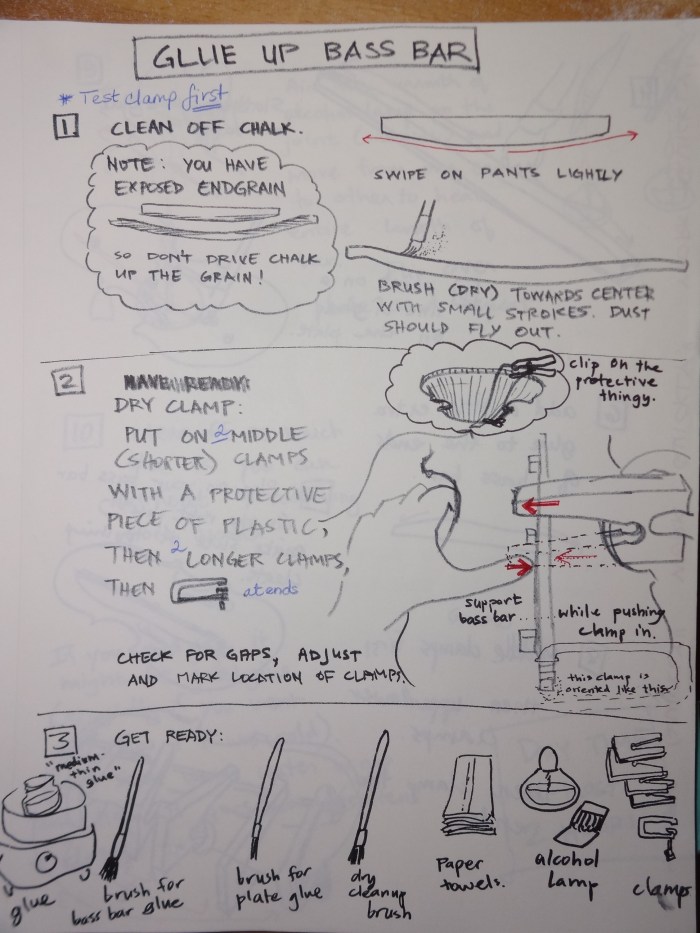 GLUE UP BASS BAR
* Test clamp first
1 CLEAN OFF CHALK.
NOTE: YOU HAVE
EXPOSED ENDGRAIN
SO DON'T DRIVE CHALK
UP THE GRAIN!
SWIPE ON PANTS LIGHTLY
BRUSH (DRY) TOWARDS CENTER
WITH SMALL STROKES. DUST
SHOULD FLY OUT.
2 HAVE READY:
DRY CLAMP:
PUT ON 2 MIDDLE
(SHORTER) CLAMPS
WITH A PROTECTIVE
PIECE OF PLASTIC,
THEN 2 LONGER CLAMPS,
THEN at ends
clip on the
protective
thingy.
support
bass bar.... while pushing
clamp in.
this clamp is
oriented like this
CHECK FOR GAPS, ADJUST
AND MARK LOCATION OF CLAMPS.
3 GET READY:
"medium-
thin
glue"
glue
brush for
bass bar glue
brush for
plate glue
dry
cleaning
brush
Paper
towels.
alcohol
lamp
clamps